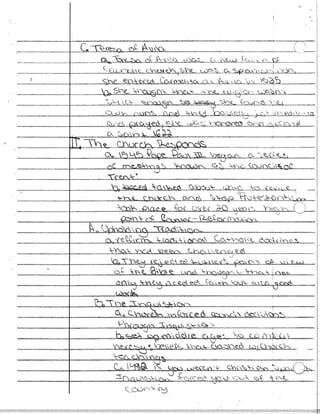 C. Teresa of Avila
a. Teresa of Avila was a new form of
Catholic church, she was a spanish nun,
she entered Carmelita at Avila in 1535
b. She thought that the religion wasn't
strict enough so she found her
own nuns and they in
and prayed, she was honored and
a Saint 1622
II. The Church Responds
a. 1545 Pope Paul III began a series
of meetings known as the Council of
Trent"
b. talked about to revive
the church and stop Protestantism
took place for over 20 years. high
point of Counter-Reformation
A. Upholding Tradition
a. reffirm traditional Catholic doctrines
that had been challenged
b. They rejected luther's point of view
of the Bible and thought that not
only they needed faith but also good
works
B. The Inquisition
a. Church inforced council decisions
through Inquisition
b. set up middle ages to combat
heresy: beliefs that clashed w/church
teachings
C. 1492 if you weren't christian Spain
Inquisition forced you out of the
country